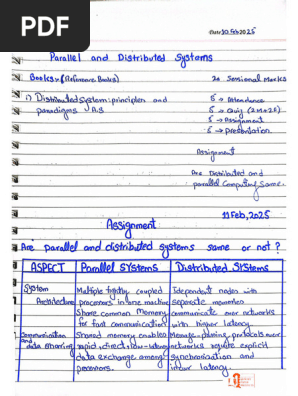 PDF
Date 10 Feb 2025
Parallel and Distributed Systems
Books:- (Reference Books)
20 Semional Marks
1) Distributed System: principles and
paradigms A.S
5 → Attendence
5 → Quiz
5 → Assignment
5 → presentation
Assignment
Are Distributed and
parallel Computing Same.
11 Feb, 2025
Assignment
Are parallel and distributed systems same or not?
ASPECT
Parallel SYStems
Distributed SYStems
System
Architecture
Multiple tightly coupled
processors in one machine
Share common Memory
for fast communication
Idependent nodes with
separate memories
communicate over networks
with higher latency.
Communication
and
data sharing
Shared memory enables
rapid, direct, low-latency
data exchange among
processors.
Message-passing protocols over
networks require explicit
synchronization and
latency.